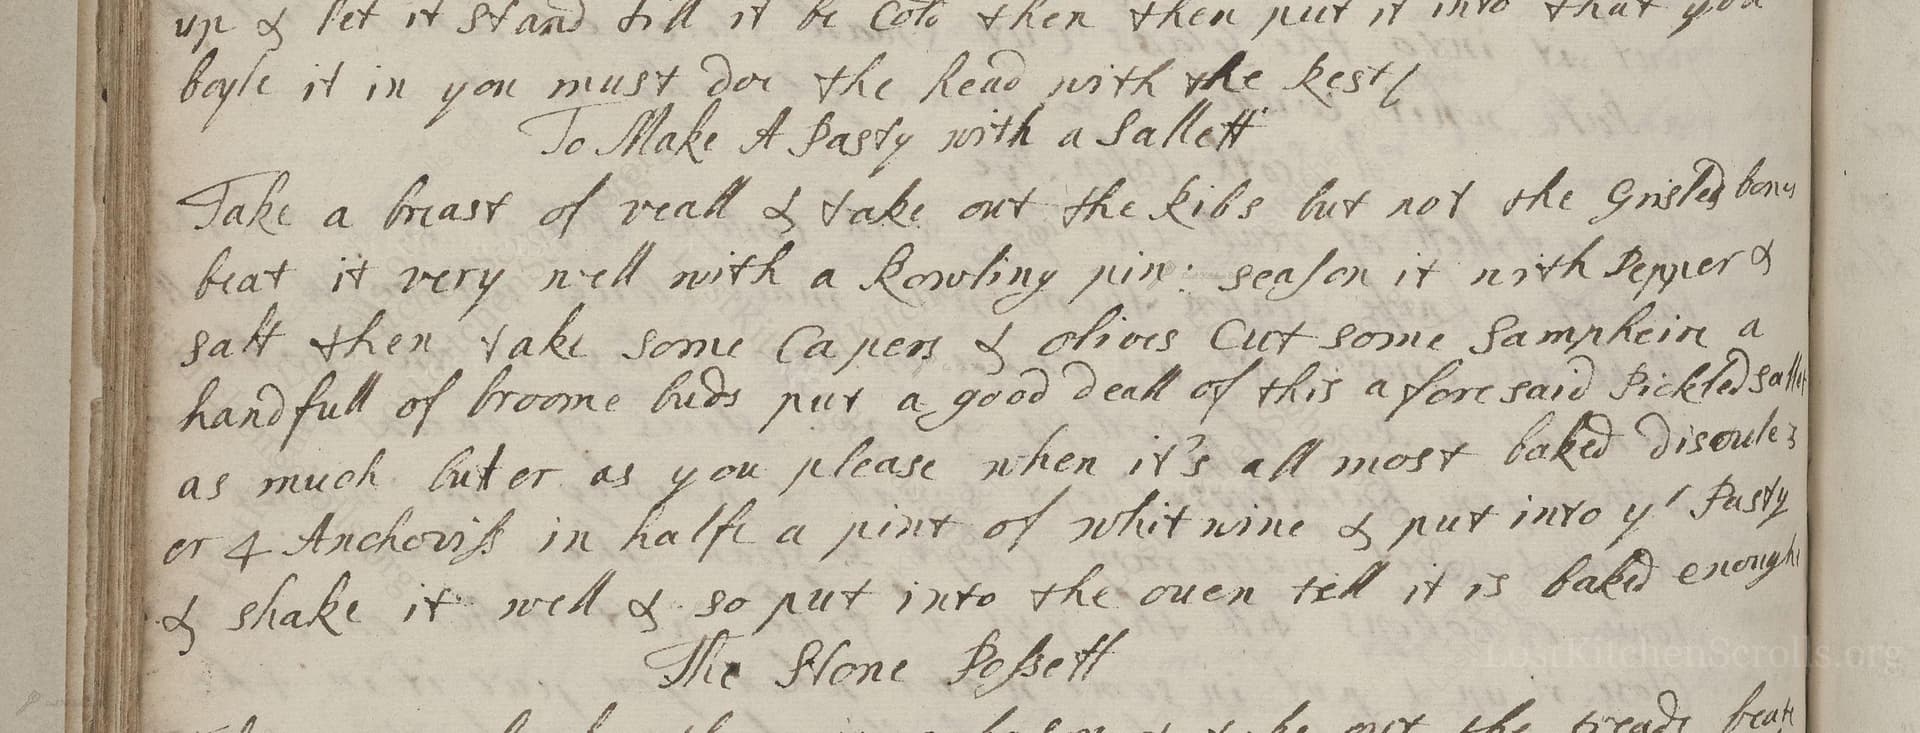 up & let it stand till it be Cold then then put it into that you
boyle it in you must doe the head with the Rest
To Make A Pasty with a Sallett
Take a breast of veall & take out the Ribs but not the Grisled bones
beat it very well with a Rowling pin: season it with Pepper &
salt then take some Capers & olives Cut some Sampheire a
handfull of broome buds put a good deall of this afore said Pickled sallet
as much buter as you please when it's all most baked disoule 3
or 4 Anchoviss in halfe a pint of whit wine & put into yr Pasty
& shake it well & so put into the ouen till it is baked enough
The Stone Possett
take out the treads beate
LostKitchenScrolls.org